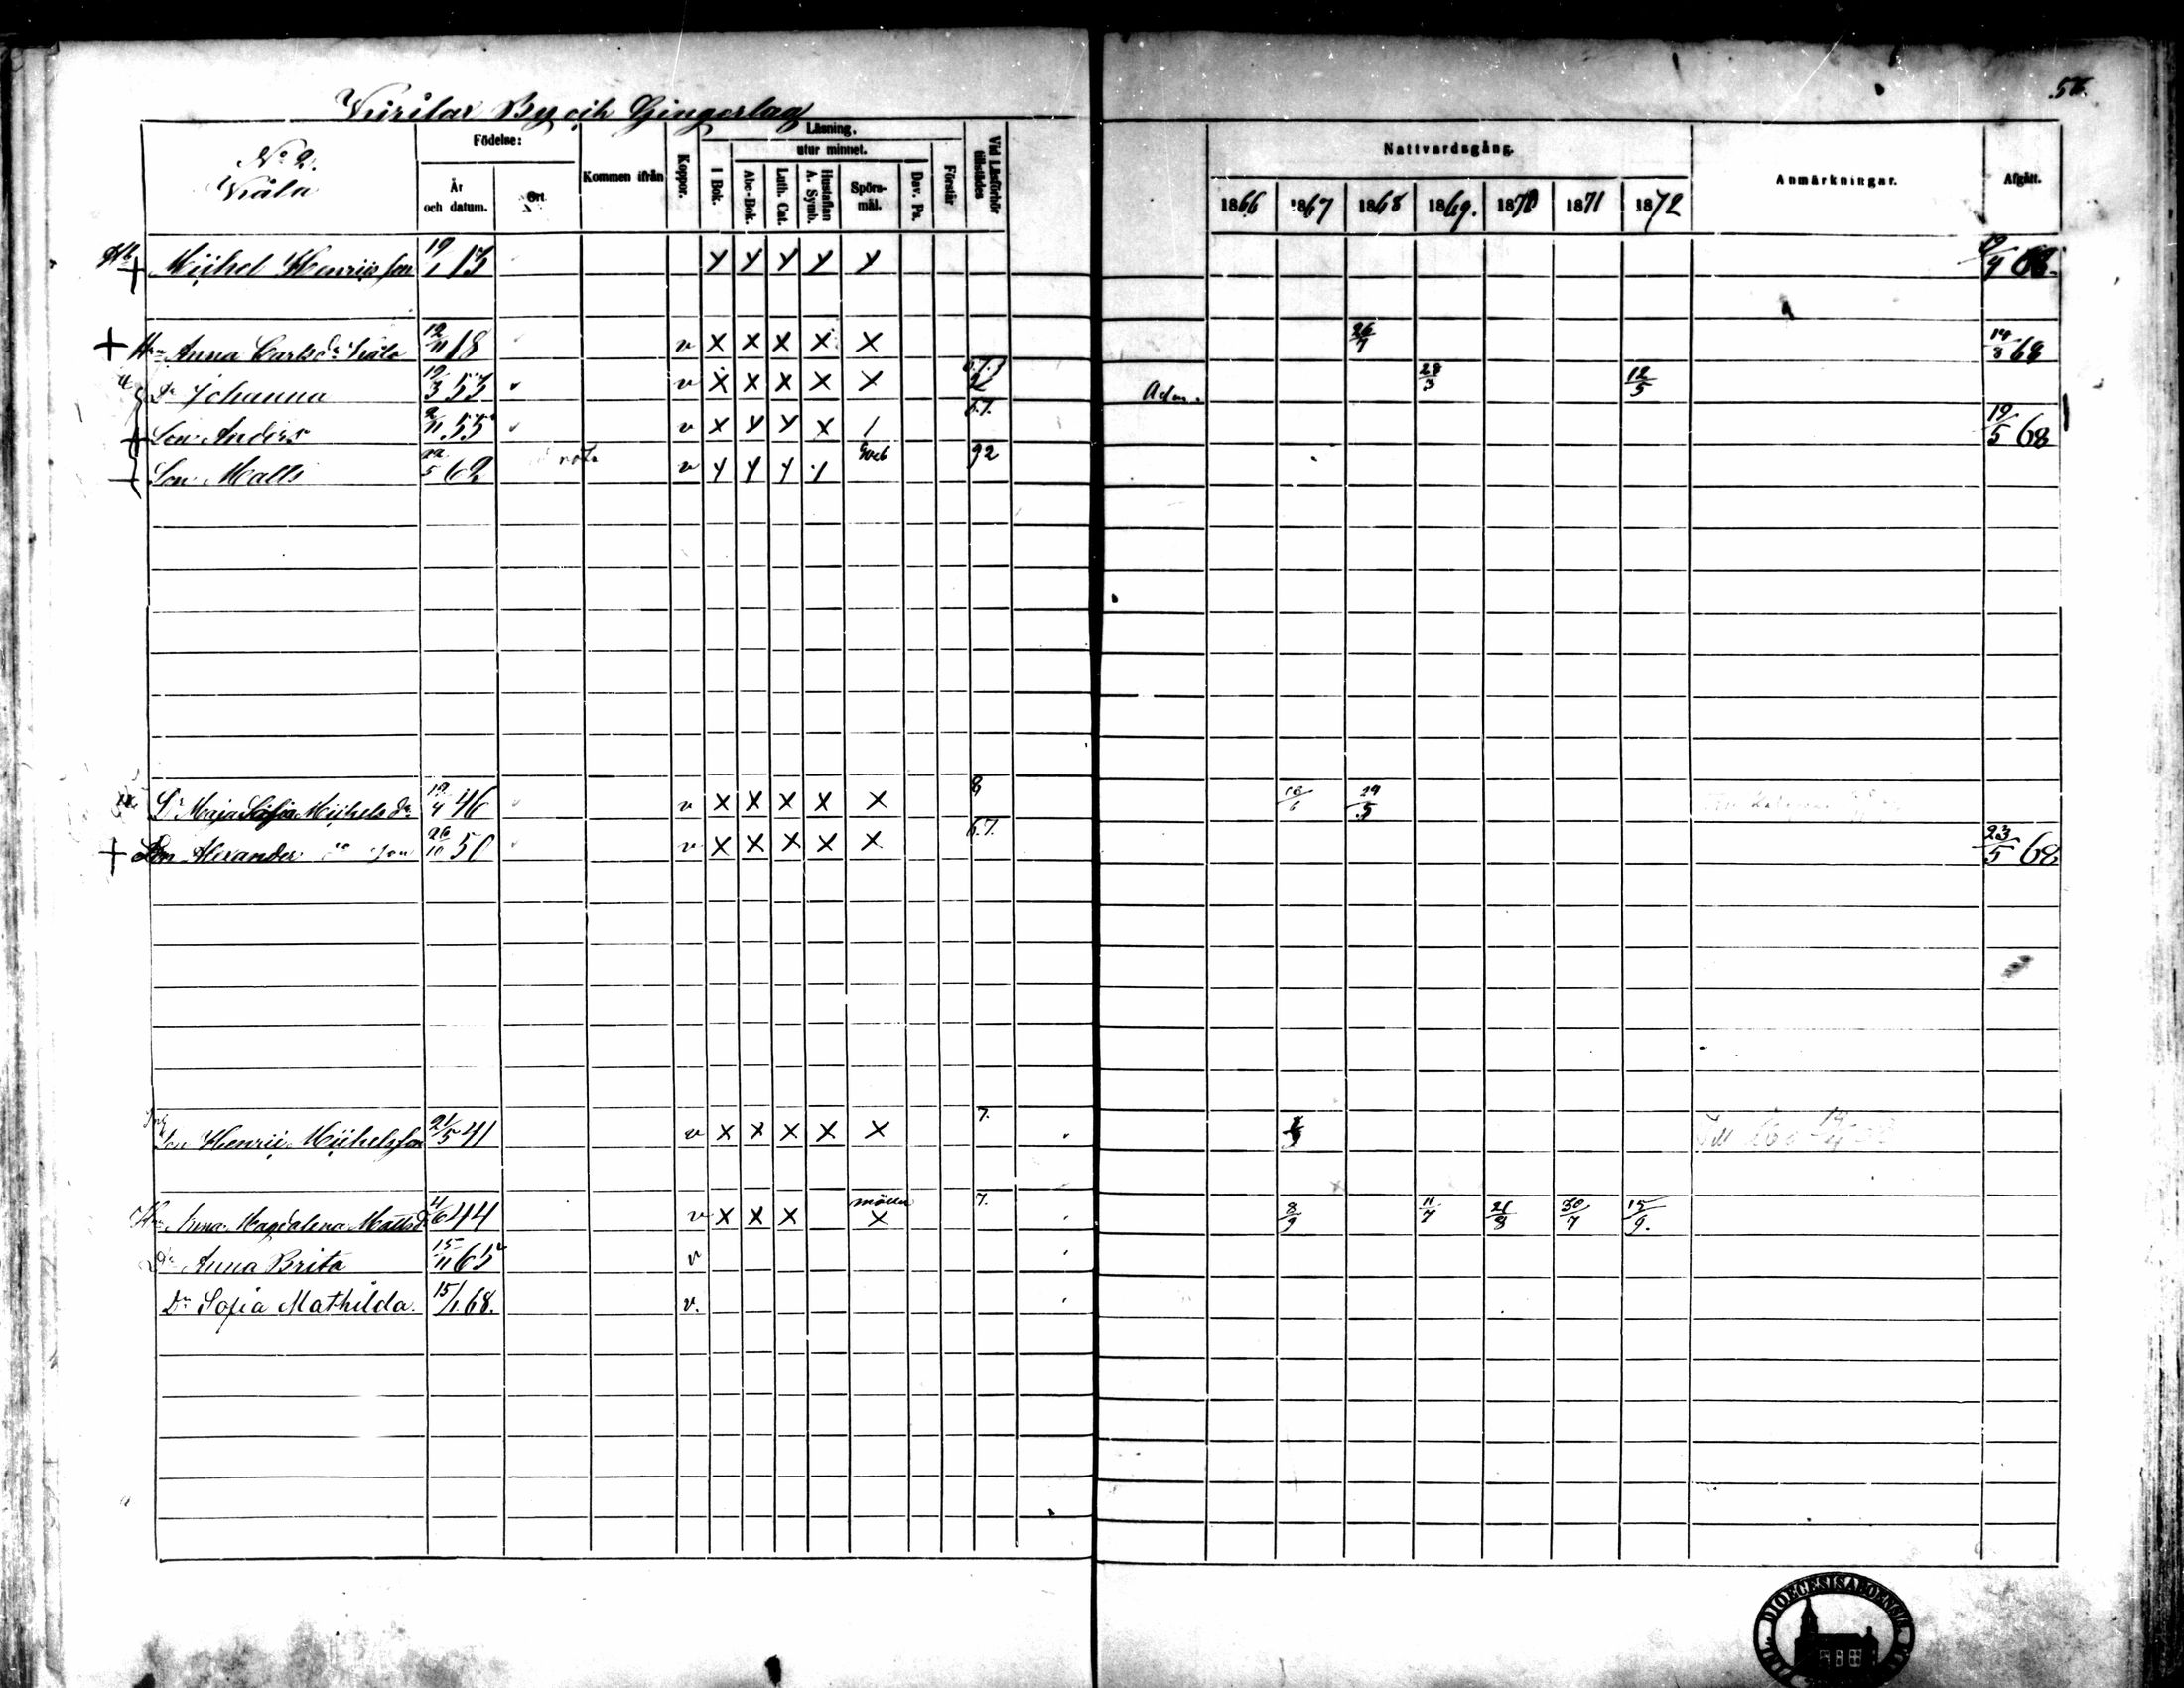 56.
By och Gingerlag
No 2.
Födelse:
År och datum.
Ort.
Kommen ifrån
Koppor.
Läsning.
I Bok.
utur minnet.
Abc-Bok.
Luth. Cat.
Hustaflan A. Symb.
Spörsmål.
Dav. Ps.
Förstår
Vid Läsförhör tillstädes
Nattvardsgång.
1866 1867 1868 1869. 1870 1871 1872
Anmärkningar.
Afgått.
+ Michel Henricsson 19/1 13 Y Y Y Y Y
+ Hu Anna Carlsdr 12/11 18 v X X X X X 26/7 14/8 68
Dr Johanna 19/3 53 v X X X X X Adm. 28/3 12/5
+ Son Anders 2/11 55 v X Y Y X / 67. 19/5 68
Son Matts 22/5 62 v Y Y Y Y 92
Dr Maja Sofia Michelsdr 19/4 46 v X X X X X 8 16/6 29/5
+ Son Alexander do son 26/10 50 v X X X X X 67. 23/5 68
Son Henric Michelsson 21/5 41 v X X X X X 7.
Hu Anna Magdalena Mattsdr 11/6 44 v X X X X 7. 8/9 11/7 21/8 30/7 15/9.
Dr Anna Brita 15/11 65 v
Dr Sofia Mathilda. 15/1 68. v.
DIOECESIS ABOENSIS